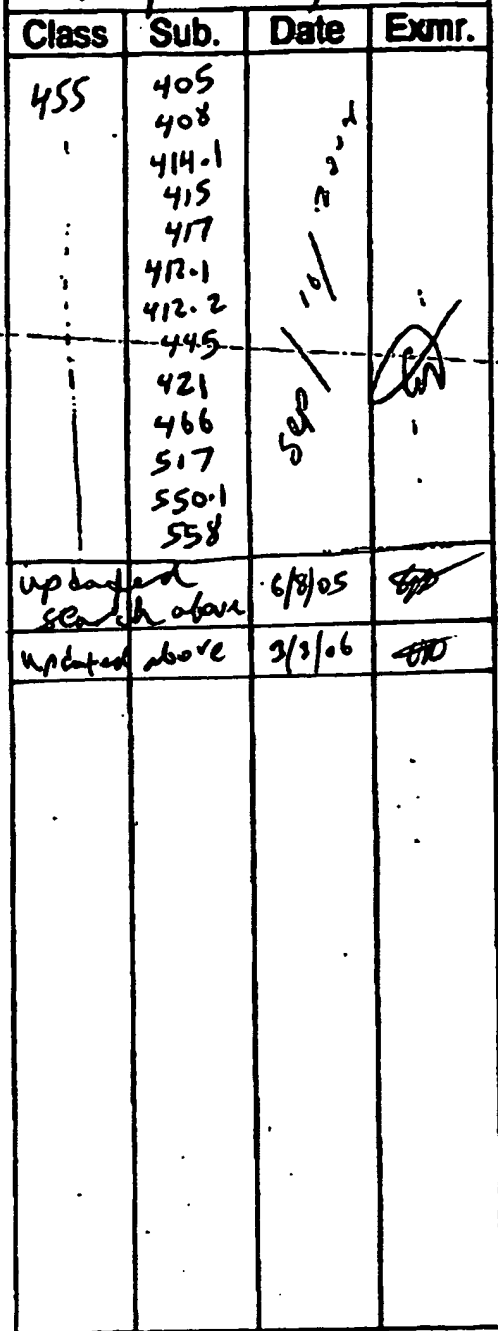 Class Sub. Date Exmr.
455 405
408
414.1
415
417
412.1
412.2
445
421
466
517
550.1
558
Sep / 10 /
updated search above 6/8/05
updated above 3/3/06